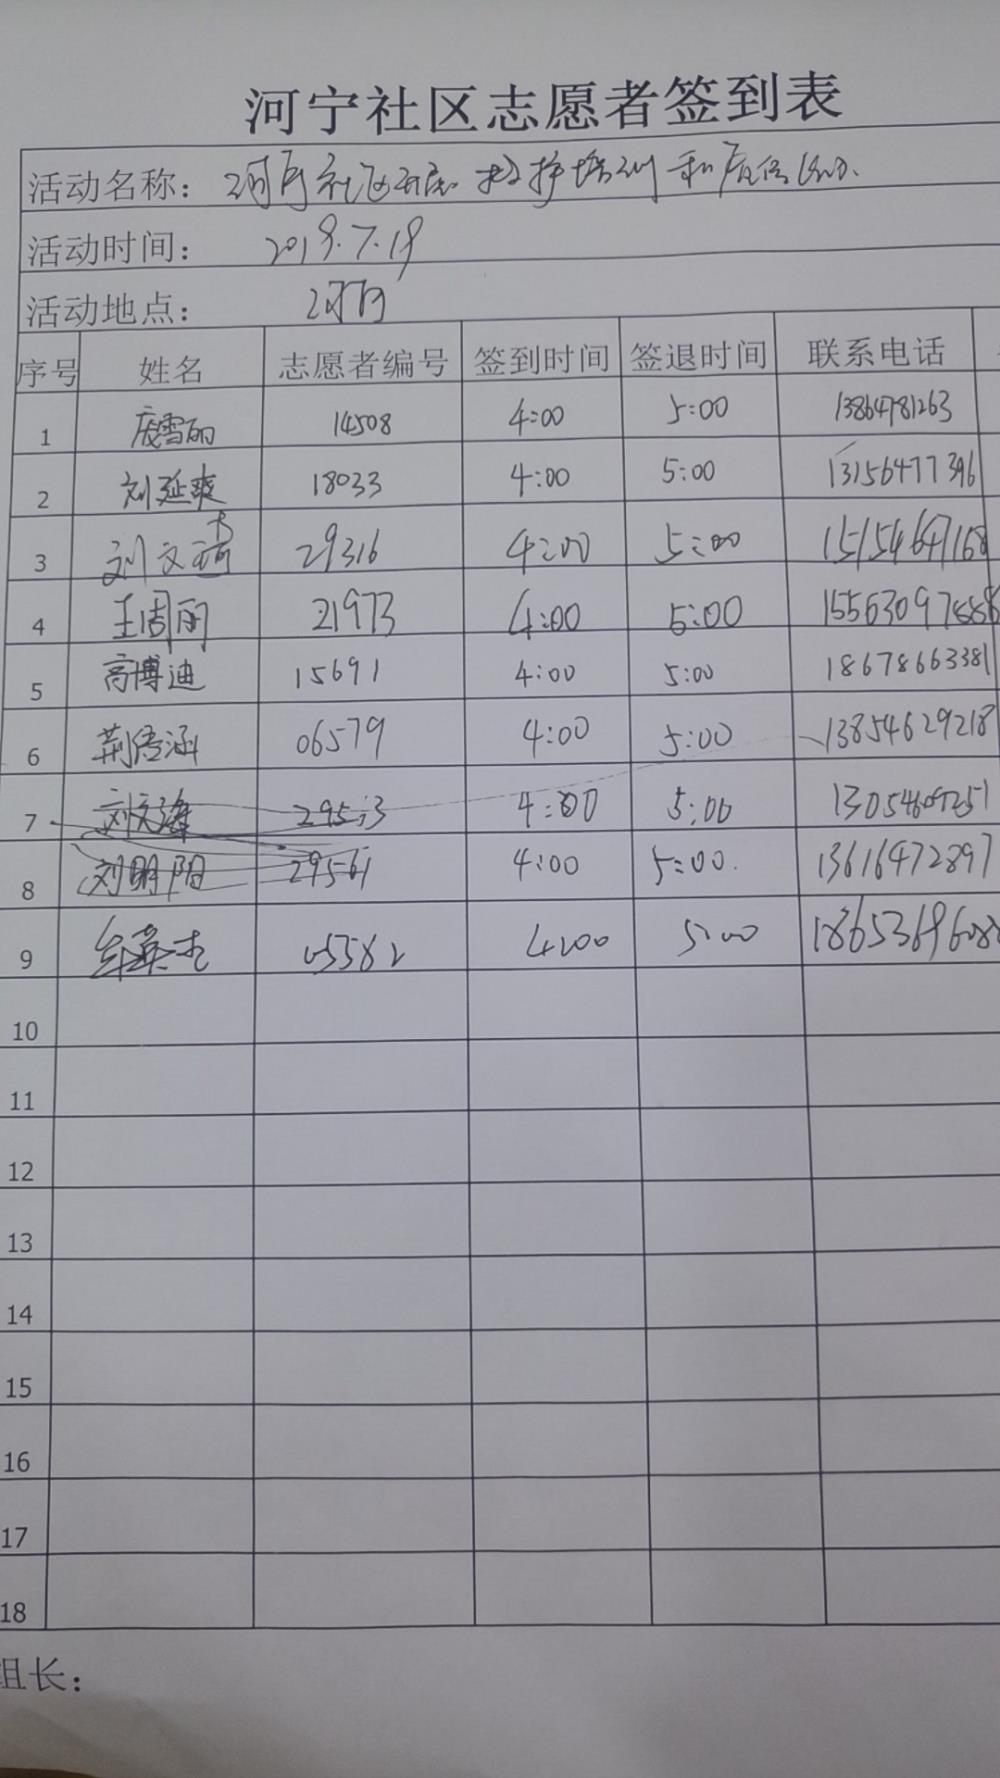 河宁社区志愿者签到表
活动名称：河宁社区开展救护培训和
活动时间：2019.7.19
活动地点：河宁
序号 姓名 志愿者编号 签到时间 签退时间 联系电话
1 庞雪丽 14508 4:00 5:00 13864781263
2 刘延爽 18033 4:00 5:00 13156477396
3 刘文琦 29316 4:00 5:00 15154647168
4 王周丽 21973 4:00 5:00
5 高博迪 15691 4:00 5:00 18678663381
6 荆语涵 06579 4:00 5:00 13854629218
7 4:00 5:00
8 刘明阳 29561 4:00 5:00. 13616472897
9 牟英杰 05582 4:00 5:00
10
11
12
13
14
15
16
17
18
组长：